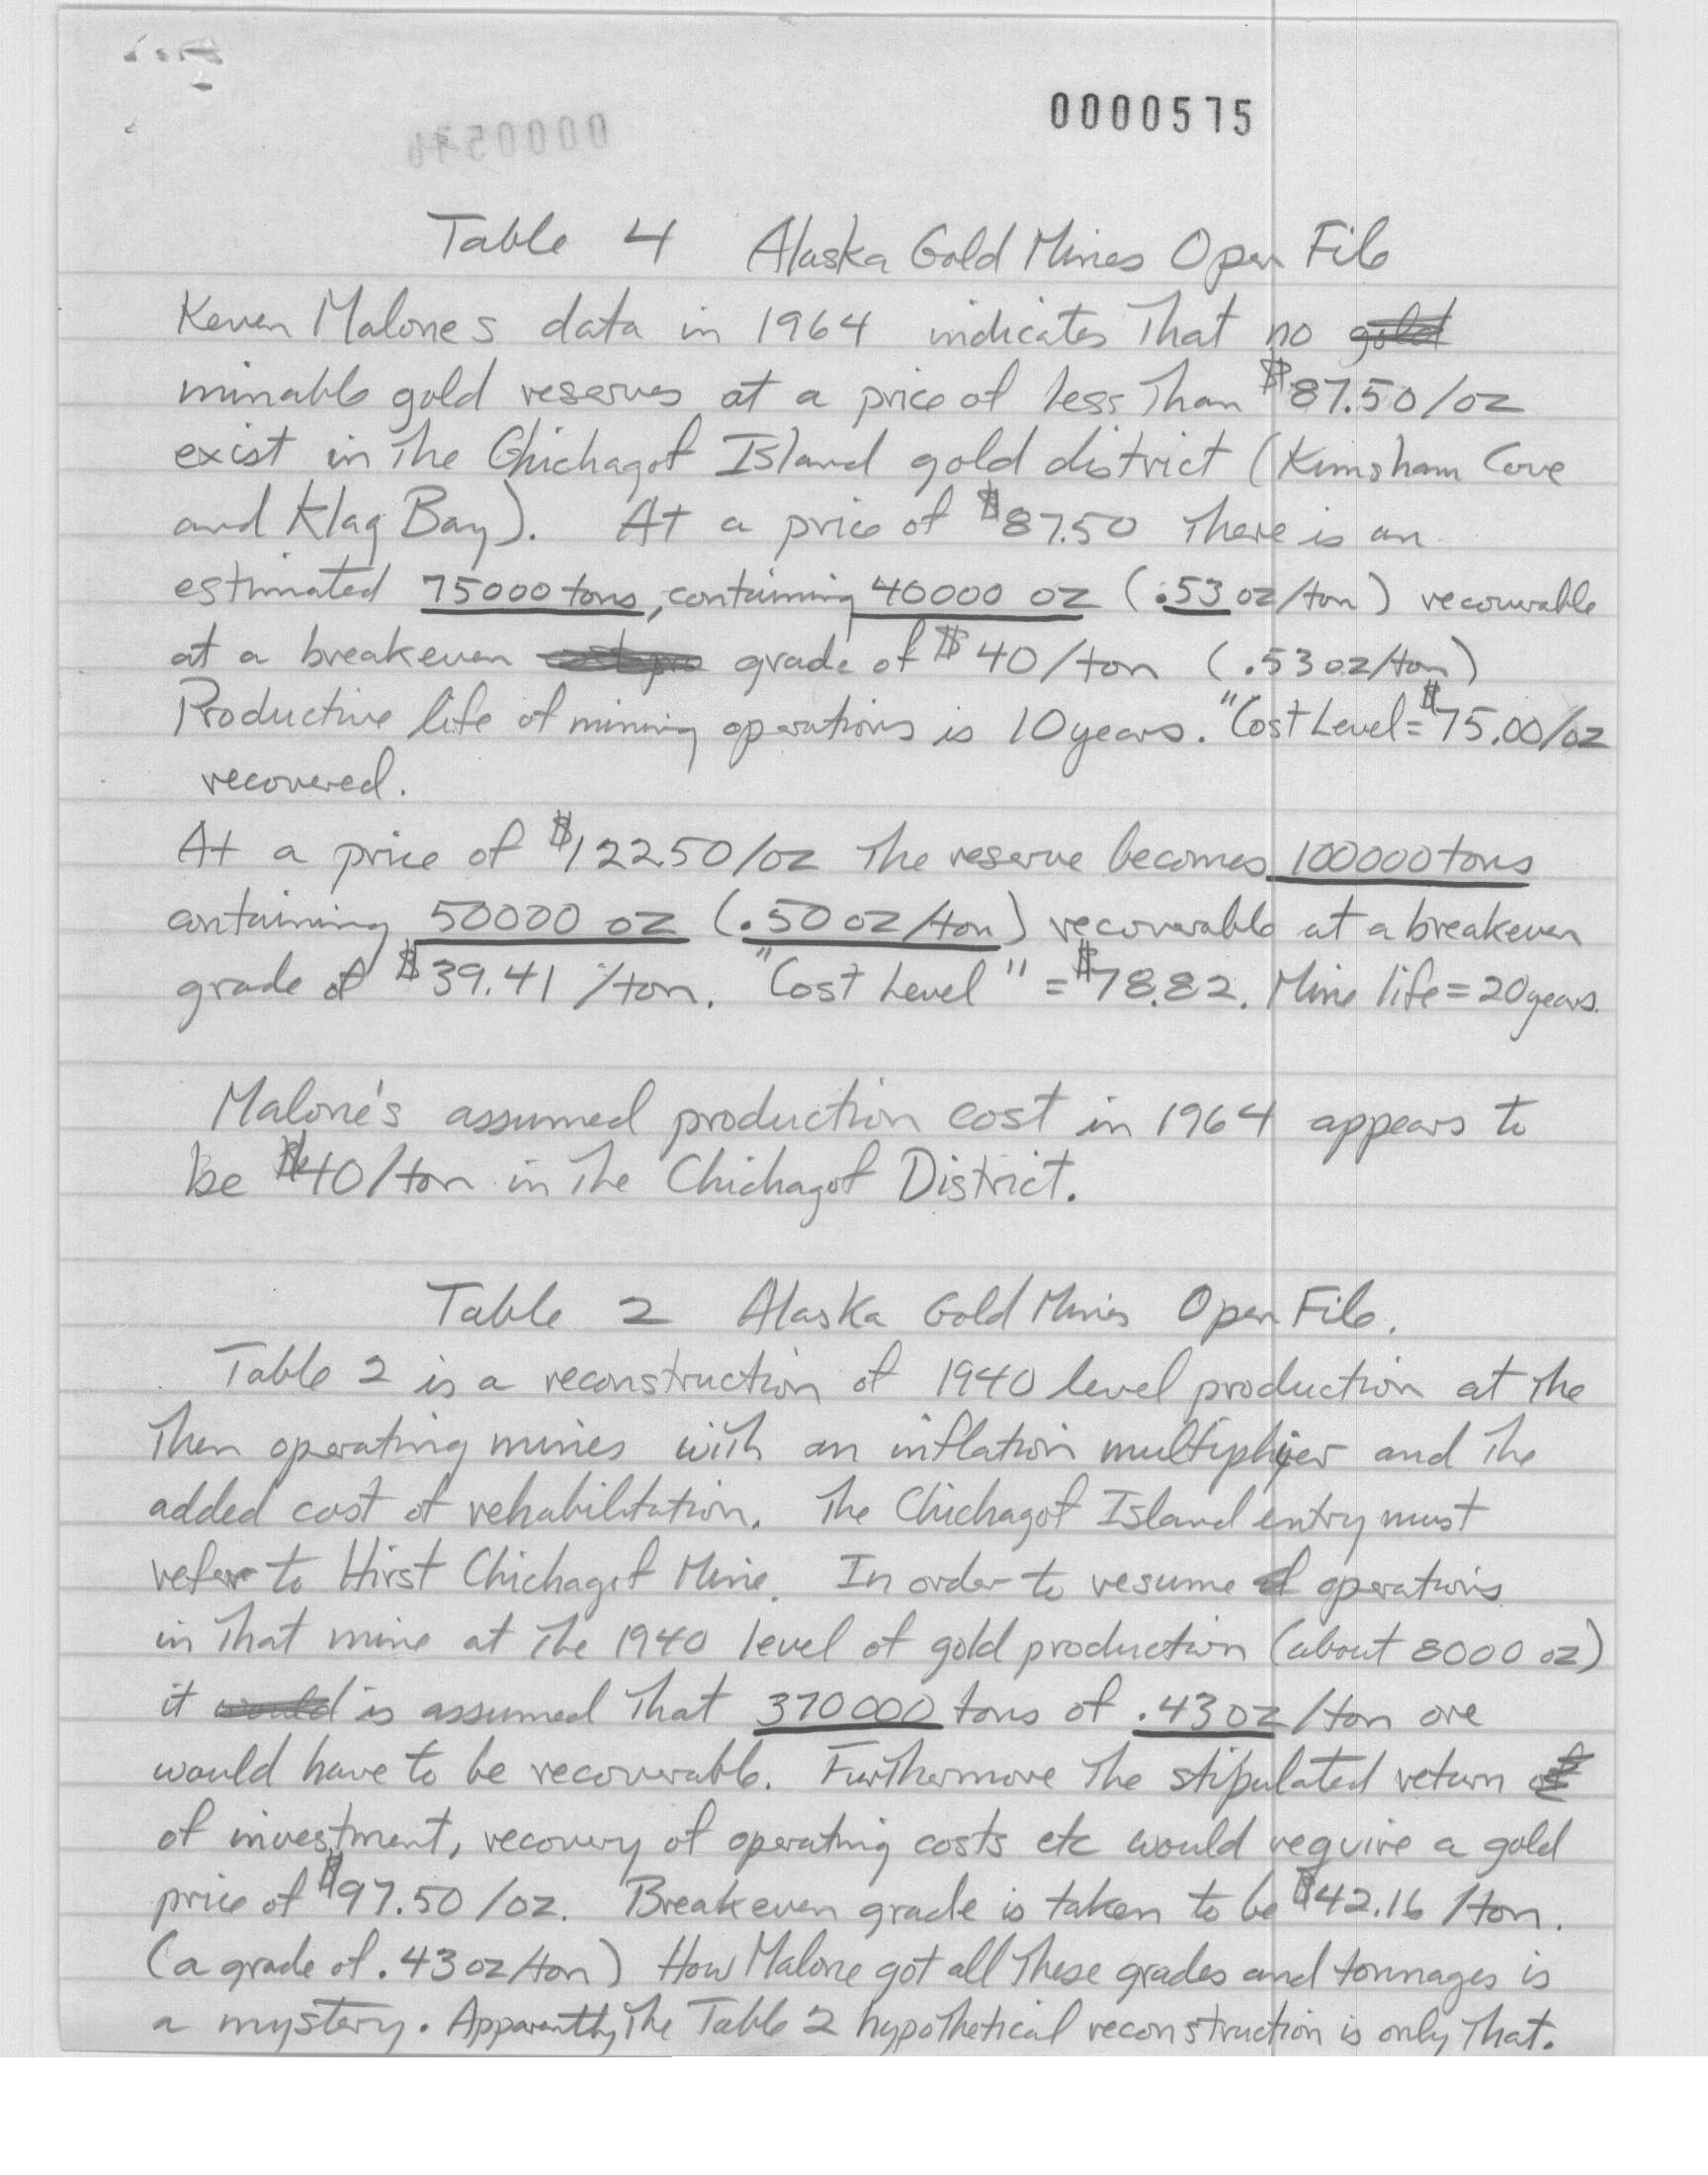 0000575
Table 4 Alaska Gold Mines Open File
Keven Malones data in 1964 indicates that no gold
minable gold reserves at a price of less than $87.50/oz
exist in the Chichagof Island gold district (Kimsham Cove
and Klag Bay). At a price of $87.50 there is an
estimated 75000 tons, containing 40000 oz (.53 oz/ton) recoverable
at a breakeven grade of $40/ton (.53 oz/ton)
Productive life of mining operations is 10 years. "Cost Level = $75.00/oz
recovered.
At a price of $122.50/oz the reserve becomes 100000 tons
containing 50000 oz (.50 oz/ton) recoverable at a breakeven
grade of $39.41 /ton. "Cost Level" = $78.82. Mine life = 20 years.
Malone's assumed production cost in 1964 appears to
be $40/ton in the Chichagof District.
Table 2 Alaska Gold Mines Open File.
Table 2 is a reconstruction of 1940 level production at the
then operating mines with an inflation multiplier and the
added cost of rehabilitation. The Chichagof Island entry must
refer to Hirst Chichagof Mine. In order to resume operations
in that mine at the 1940 level of gold production (about 8000 oz)
it would is assumed that 370000 tons of .43 oz/ton ore
would have to be recoverable. Furthermore the stipulated return
of investment, recovery of operating costs etc would require a gold
price of $97.50/oz. Breakeven grade is taken to be $42.16 /ton.
(a grade of .43 oz/ton) How Malone got all these grades and tonnages is
a mystery. Apparently the Table 2 hypothetical reconstruction is only that.